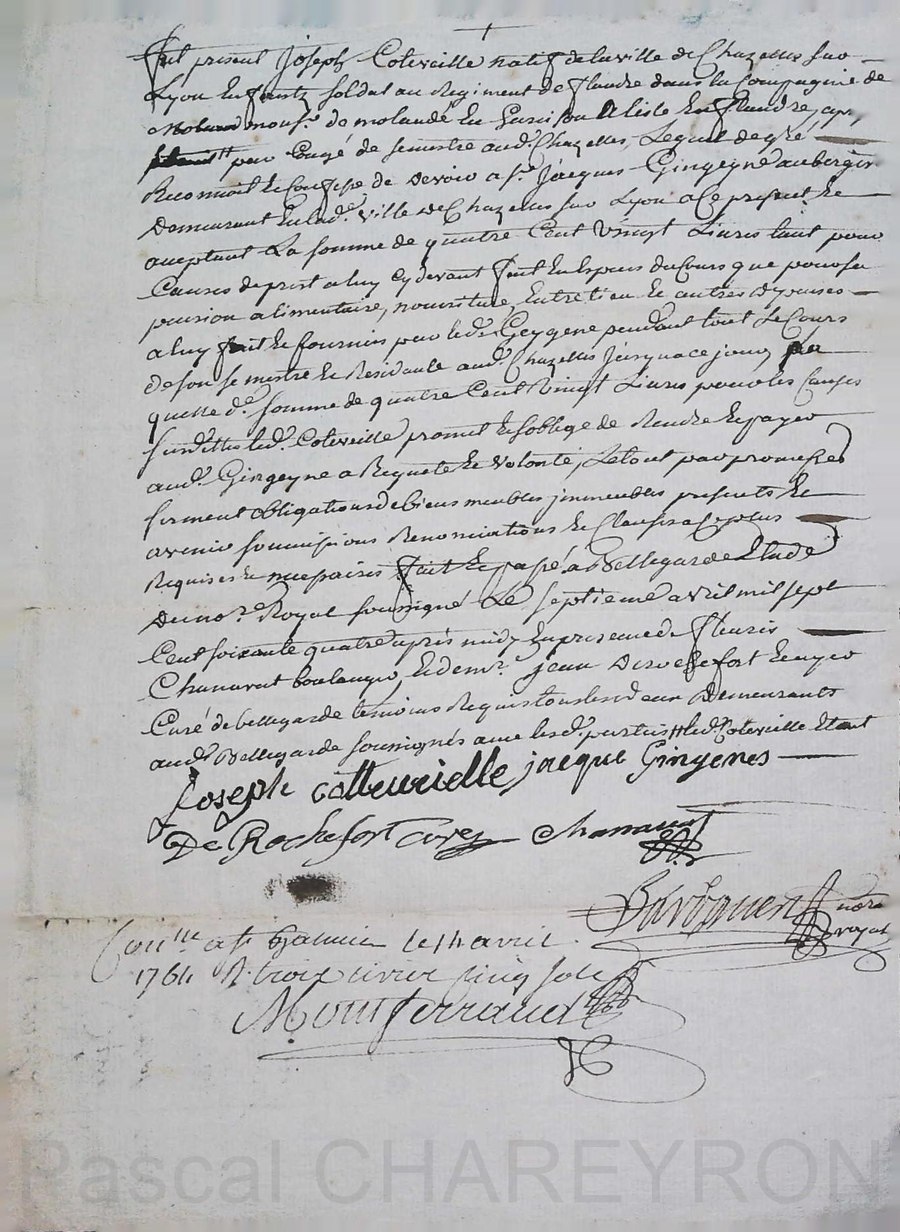 fut présent Joseph Coteveille natif de la ville de Chazelles sur
Lyon Enfantz soldat au Regiment de flandre dans la Compagnie de
mons.r de molandé En Garnison a lisle En flandre,
par Congé de semestre aud. Chazelles, Lequel de gré
Reconnoit Et Confesse de devoir a s.r Jacques Gingeyne aubergiste
Demeurant En lad.e ville de Chazelles sur Lyon a Ce présent Et
aceptant La somme de quatre Cent Vingt Livres tant pour
Causes de prest a luy Cy devant fait En Espèces du Cours que pour sa
pension alimentaire, nourriture Entretien Et autres dépenses
a luy fait Et fournis par led. Geygene pendant tout Le Cours
de son semestre Et Residante aud. Chazelles Jusqu'a ce jour,
quelle d.e somme de quatre Cent Vingt Livres pour les Causes
Susd.ittes led. Coteveille promet Et s'oblige de Rendre Et payer
aud. Gingeyne a Requete Et Volonté, Le tout par promesses
serment obligations de biens meubles immeubles présents Et
avenir soumissions Renonciations Et Clauses
Requises Et necessaires fait Et passé a Bellegarde Etude
Du no.re Royal soussigné Le septieme avril mil sept
Cent soixante quatre après midy En presence de fleuris
Chanavat boulanger, Et de m.r jean De rochefort
Curé de bellegarde temoins Requis tous les deux Demeurants
aud. Bellegarde soussignés avec lesd. parties led. Coteveille Etant
Joseph cotteurielle jacque Gingenes
De Rochefort curé Chanavat
nore
royal
Con.lle a st Galmier le 14 avril
1764 R. trois livres cinq sols
Montferrand
Pascal CHAREYRON